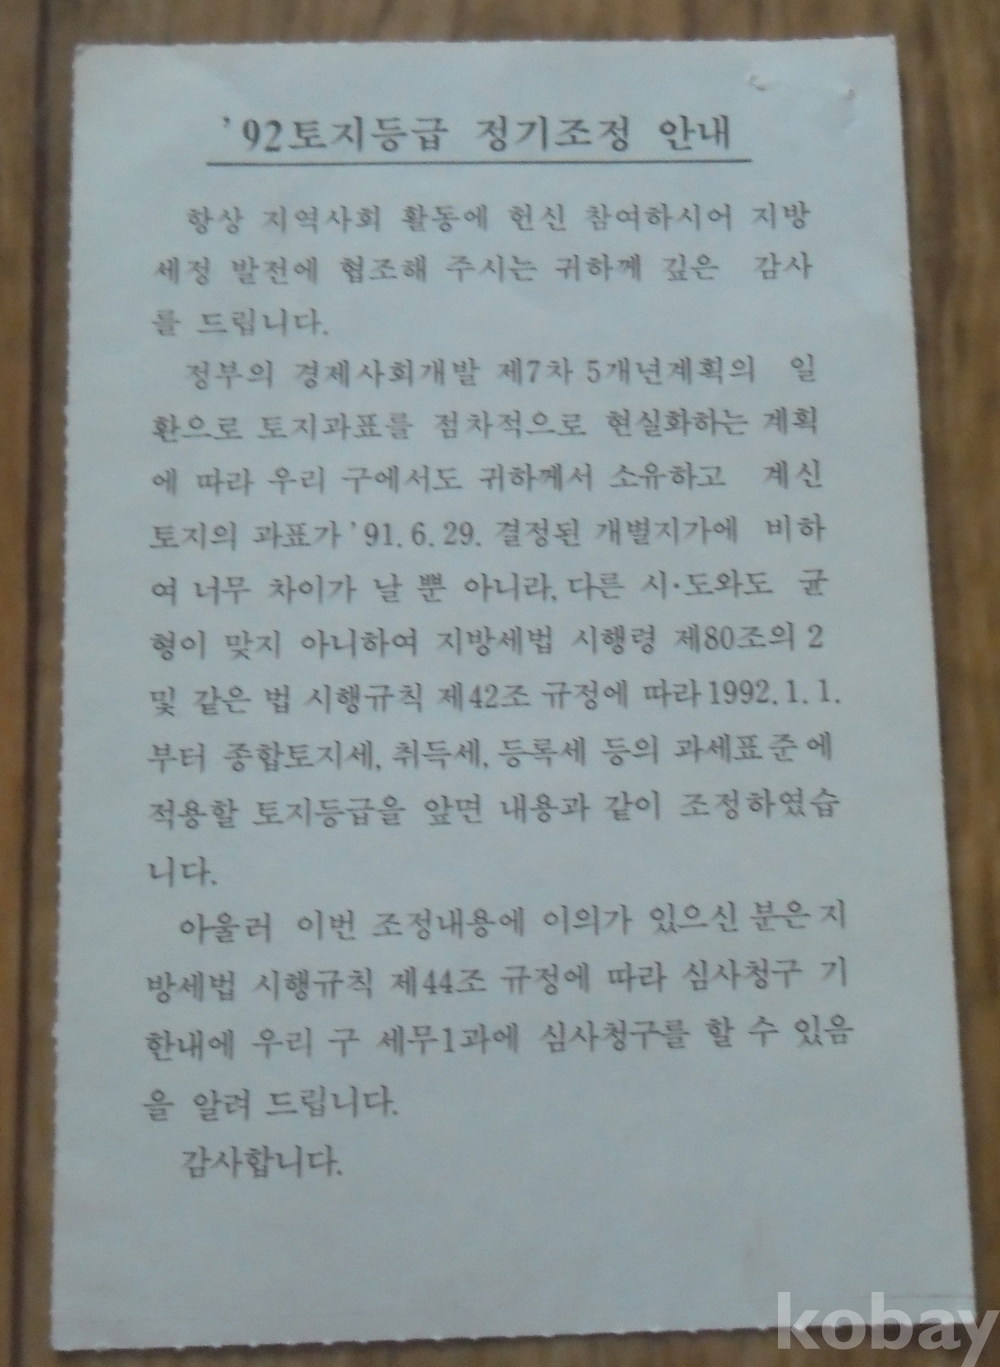 '92토지등급 정기조정 안내
항상 지역사회 활동에 헌신 참여하시어 지방
세정 발전에 협조해 주시는 귀하께 깊은 감사
를 드립니다.
정부의 경제사회개발 제7차 5개년계획의 일
환으로 토지과표를 점차적으로 현실화하는 계획
에 따라 우리 구에서도 귀하께서 소유하고 계신
토지의 과표가 '91. 6. 29. 결정된 개별지가에 비하
여 너무 차이가 날 뿐 아니라, 다른 시·도와도 균
형이 맞지 아니하여 지방세법 시행령 제80조의 2
및 같은 법 시행규칙 제42조 규정에 따라 1992. 1. 1.
부터 종합토지세, 취득세, 등록세 등의 과세표준에
적용할 토지등급을 앞면 내용과 같이 조정하였습
니다.
아울러 이번 조정내용에 이의가 있으신 분은 지
방세법 시행규칙 제44조 규정에 따라 심사청구 기
한내에 우리 구 세무1과에 심사청구를 할 수 있음
을 알려 드립니다.
감사합니다.
kobay